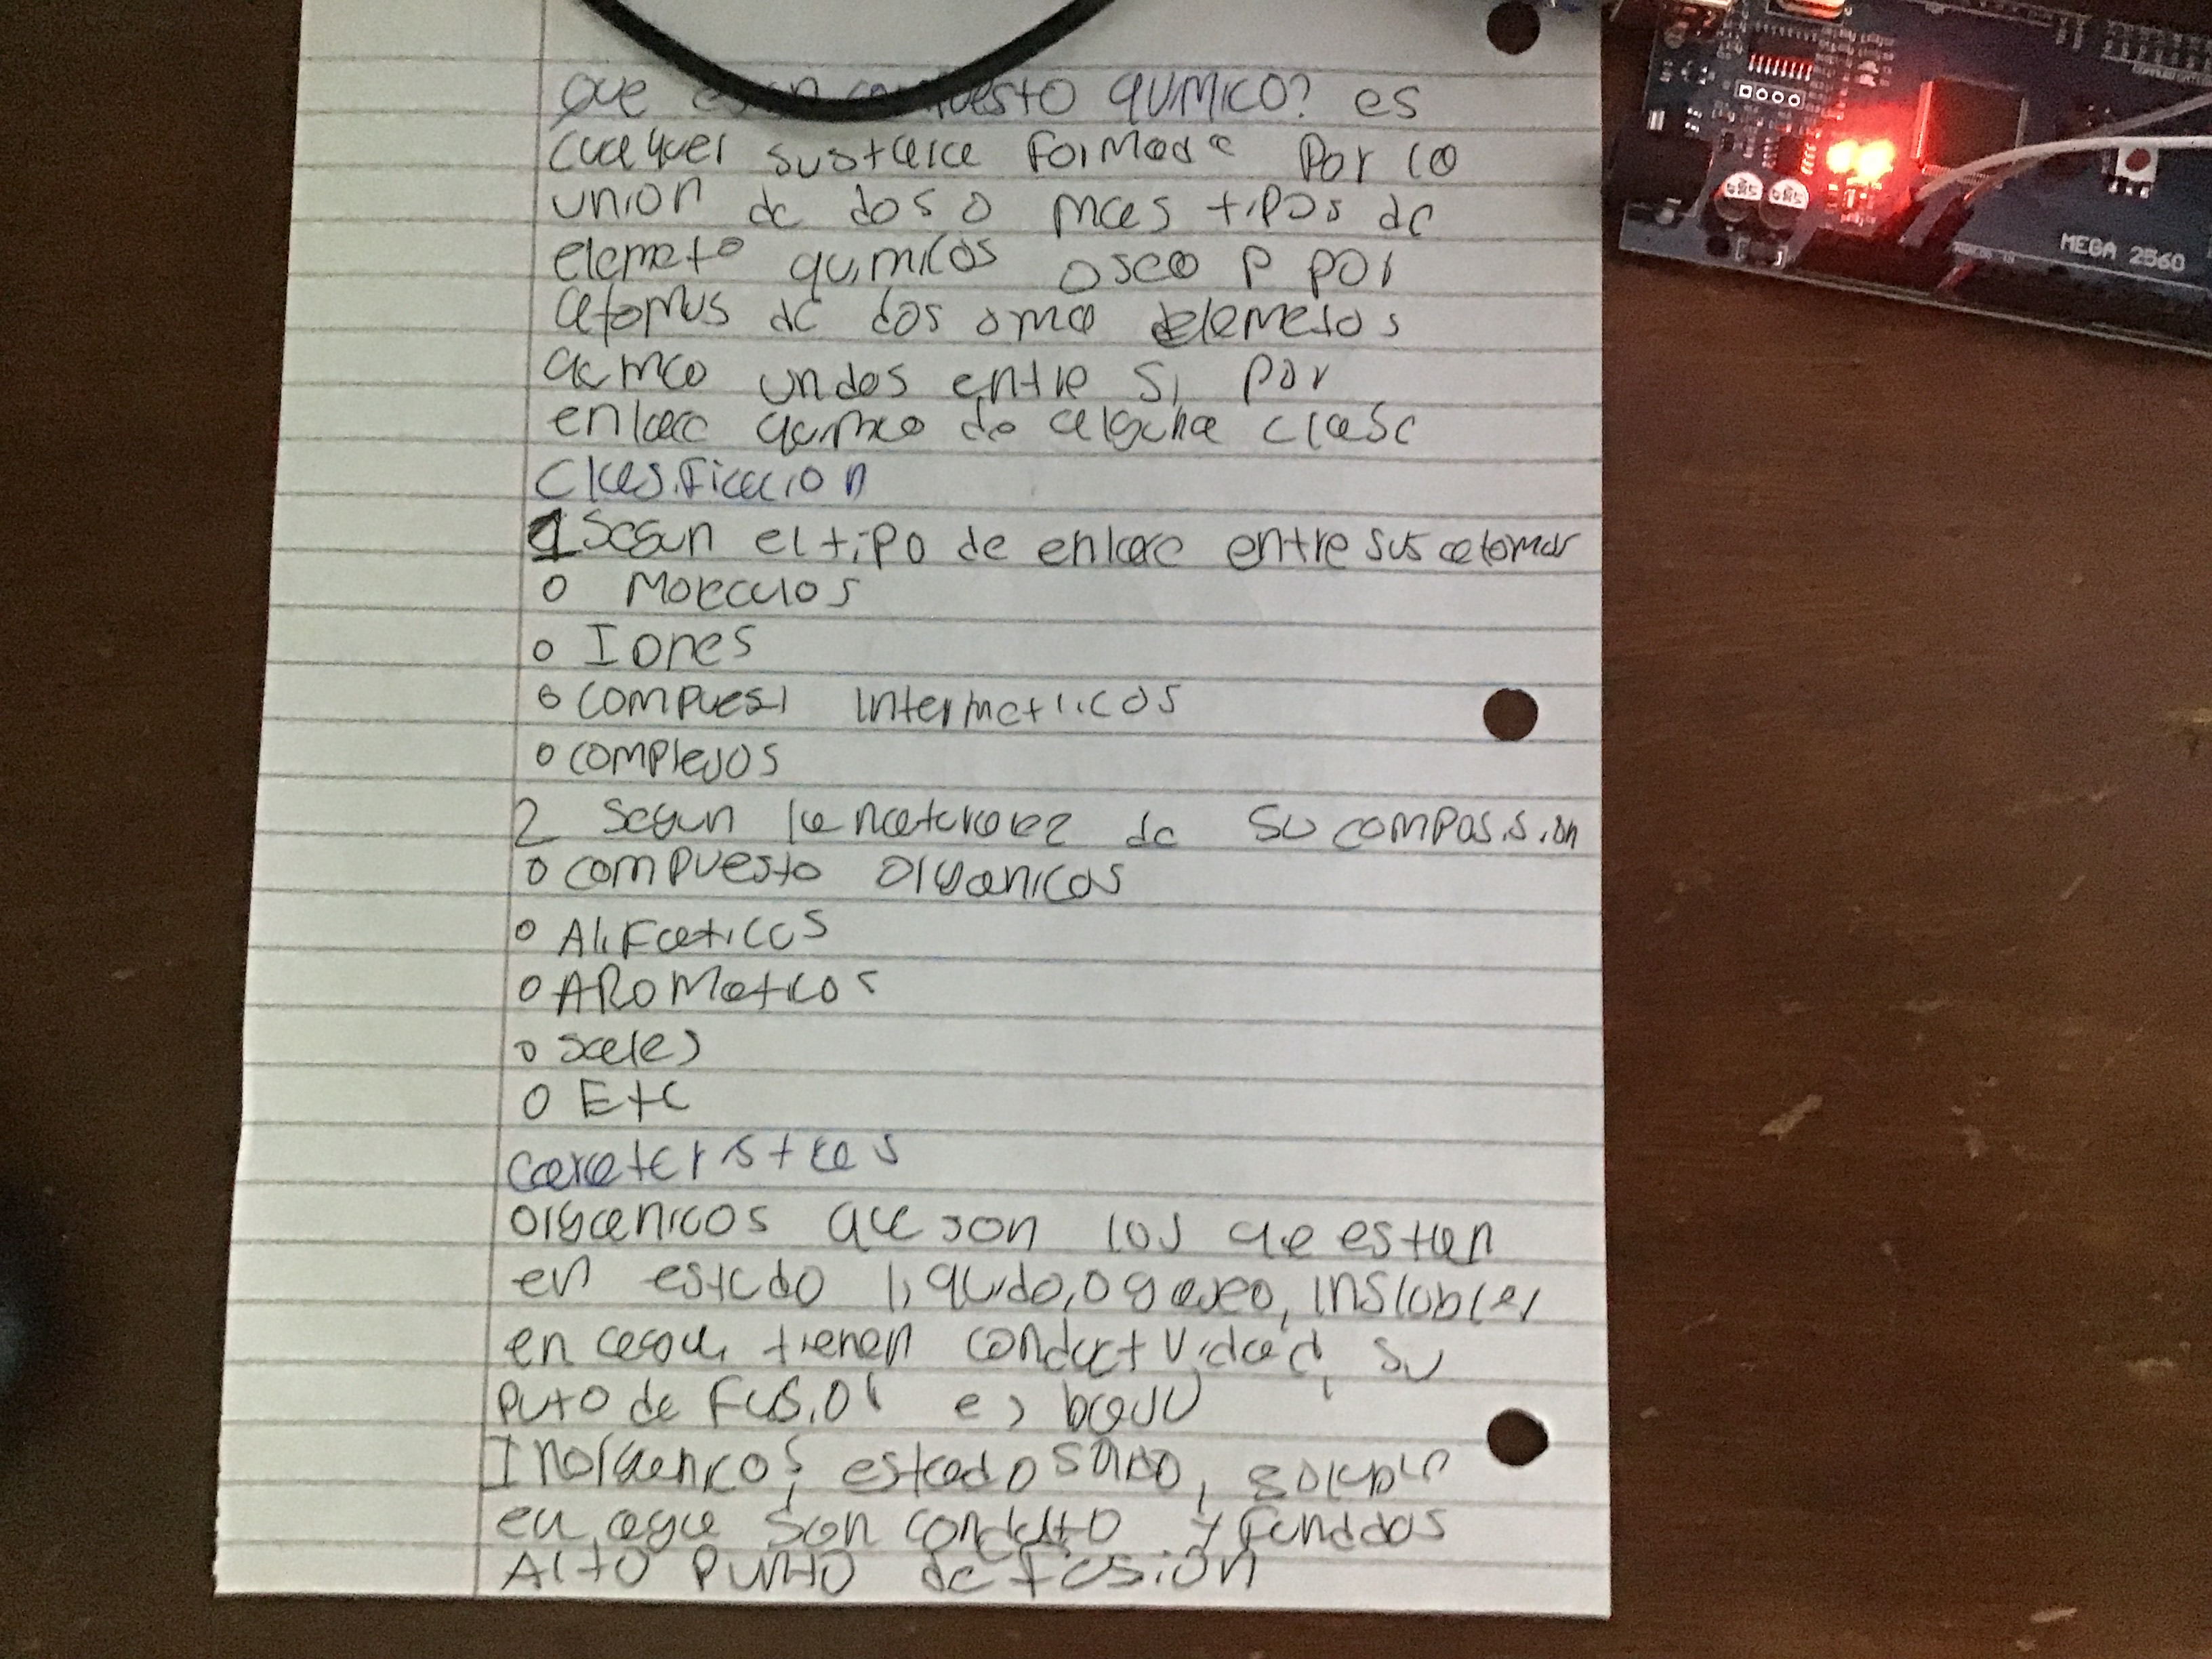 que es un compuesto quimico? es
cualquer sustacia formada por la
union de dos o mas tipos de
elemeto quimicos osea p por
atomus de dos o ma delemetos
qumco undos entre si por
enlace qumico de alguna clase
Clasificacion
1 Segun el tipo de enlace entre sus atomos
o Moleculos
o Iones
o compuest intermetlicos
o complejos
2 segun la naturalez de su compossion
o compuesto organicos
o Alifaticos
o AROMaticos
o sales
o Etc
Carateristcas
organicos que son los que estan
en estado liquido, o gaseo, inslubles
en agua, tienen conductvidad, su
puto de fusion es bajo
Inorganicos, estado solido, soluble
en agua son conducto y fundidos
Alto punto de fusion
MEGA 2560